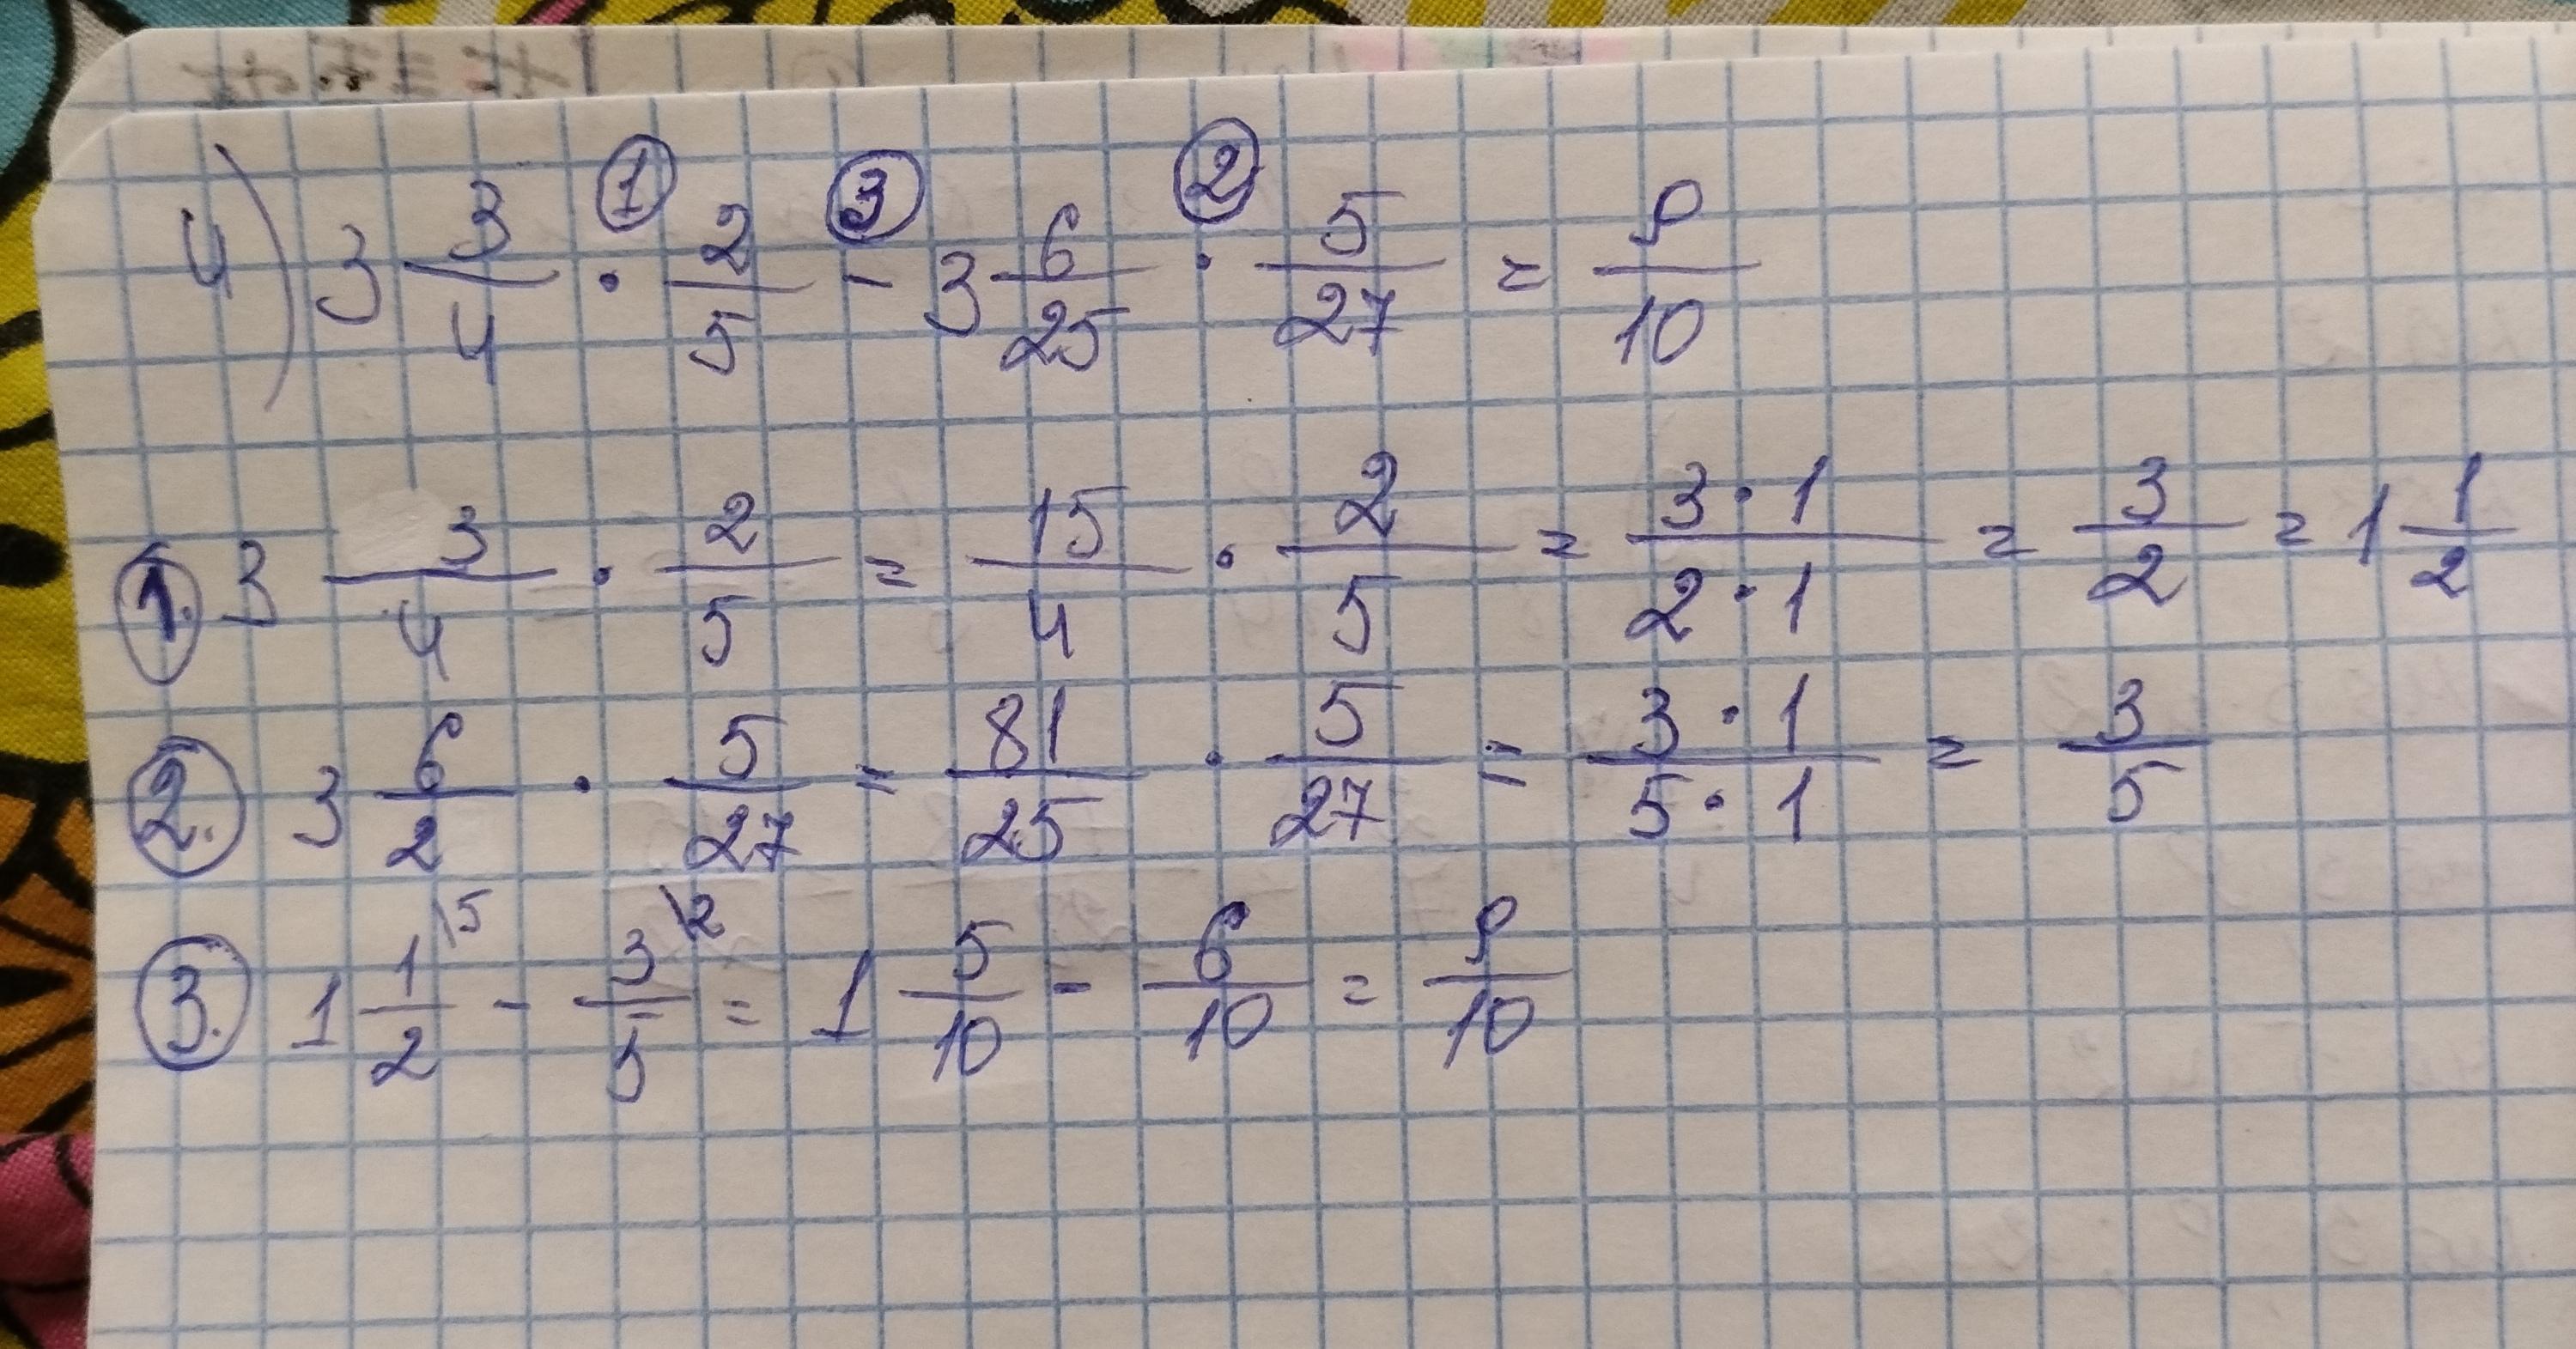 4) 3 3/4 · 2/5 - 3 6/25 · 5/27 = 9/10
① ③ ②
1. 3 3/4 · 2/5 = 15/4 · 2/5 = 3·1/2·1 = 3/2 = 1 1/2
2. 3 6/2 · 5/27 = 81/25 · 5/27 = 3·1/5·1 = 3/5
3. 1 1\5/2 - 3\2/5 = 1 5/10 - 6/10 = 9/10